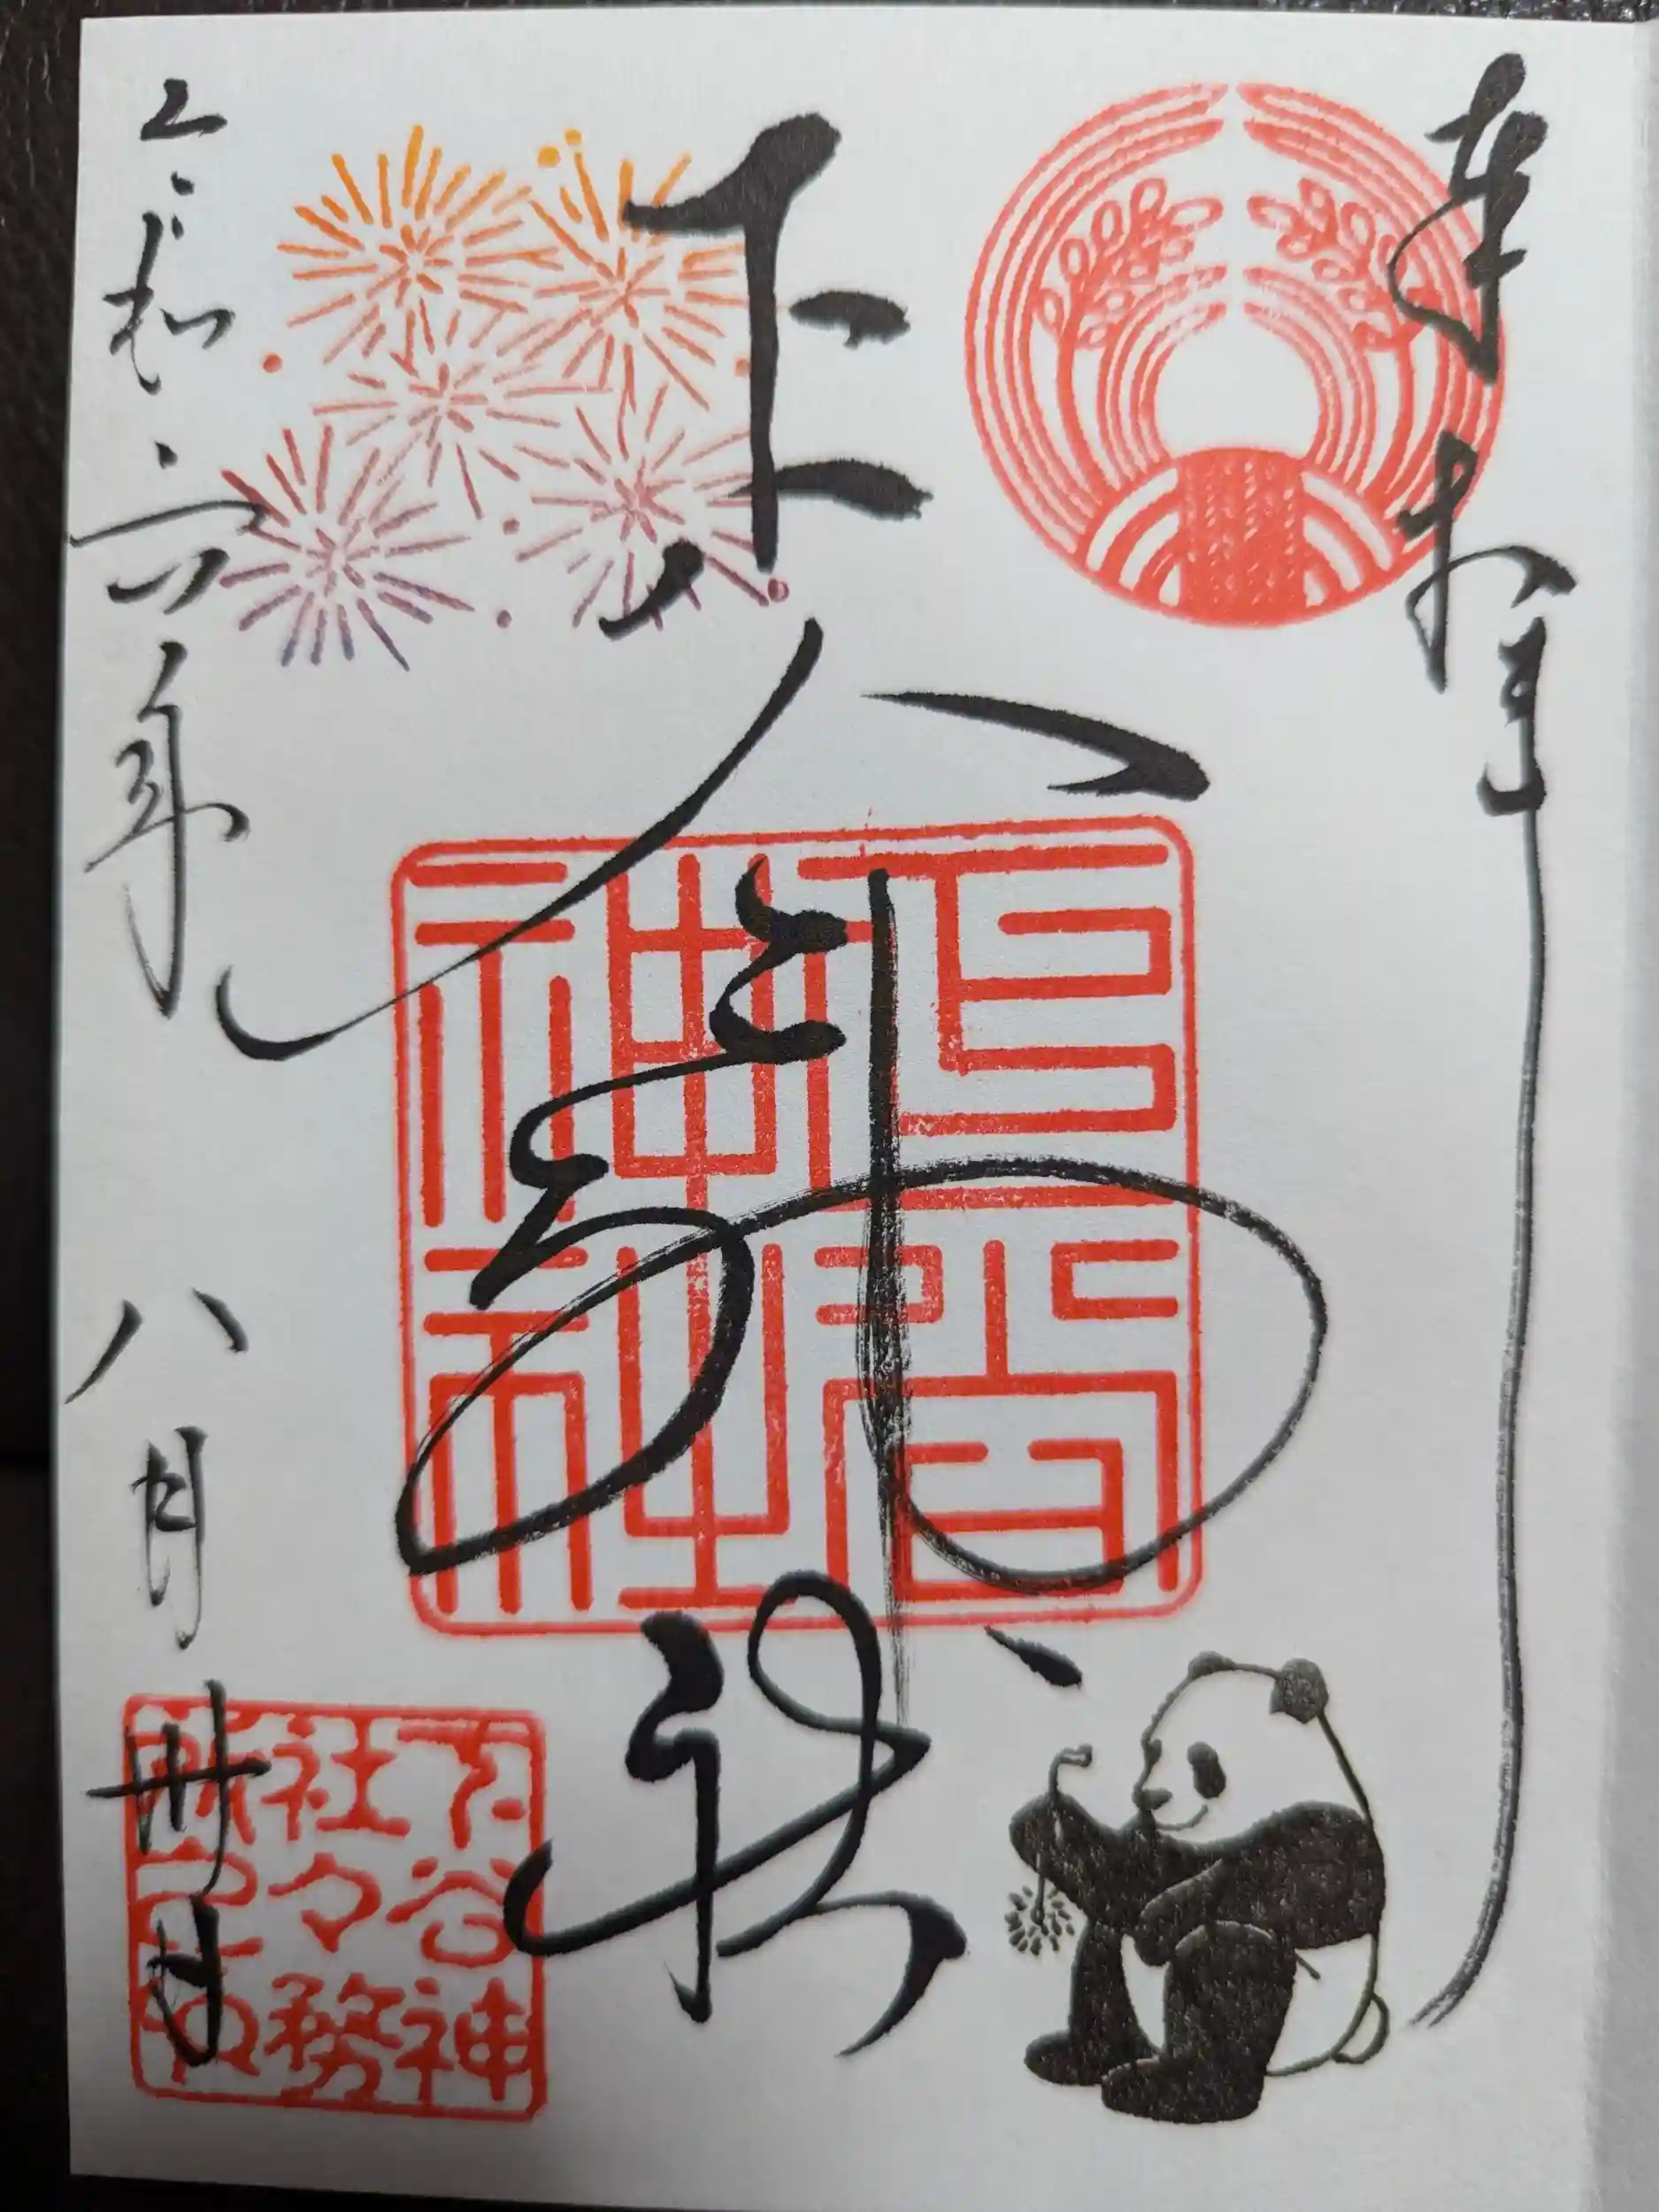 奉拝
下谷神社
下谷神社
令和六年八月卅日
下谷神
社々務
所之印